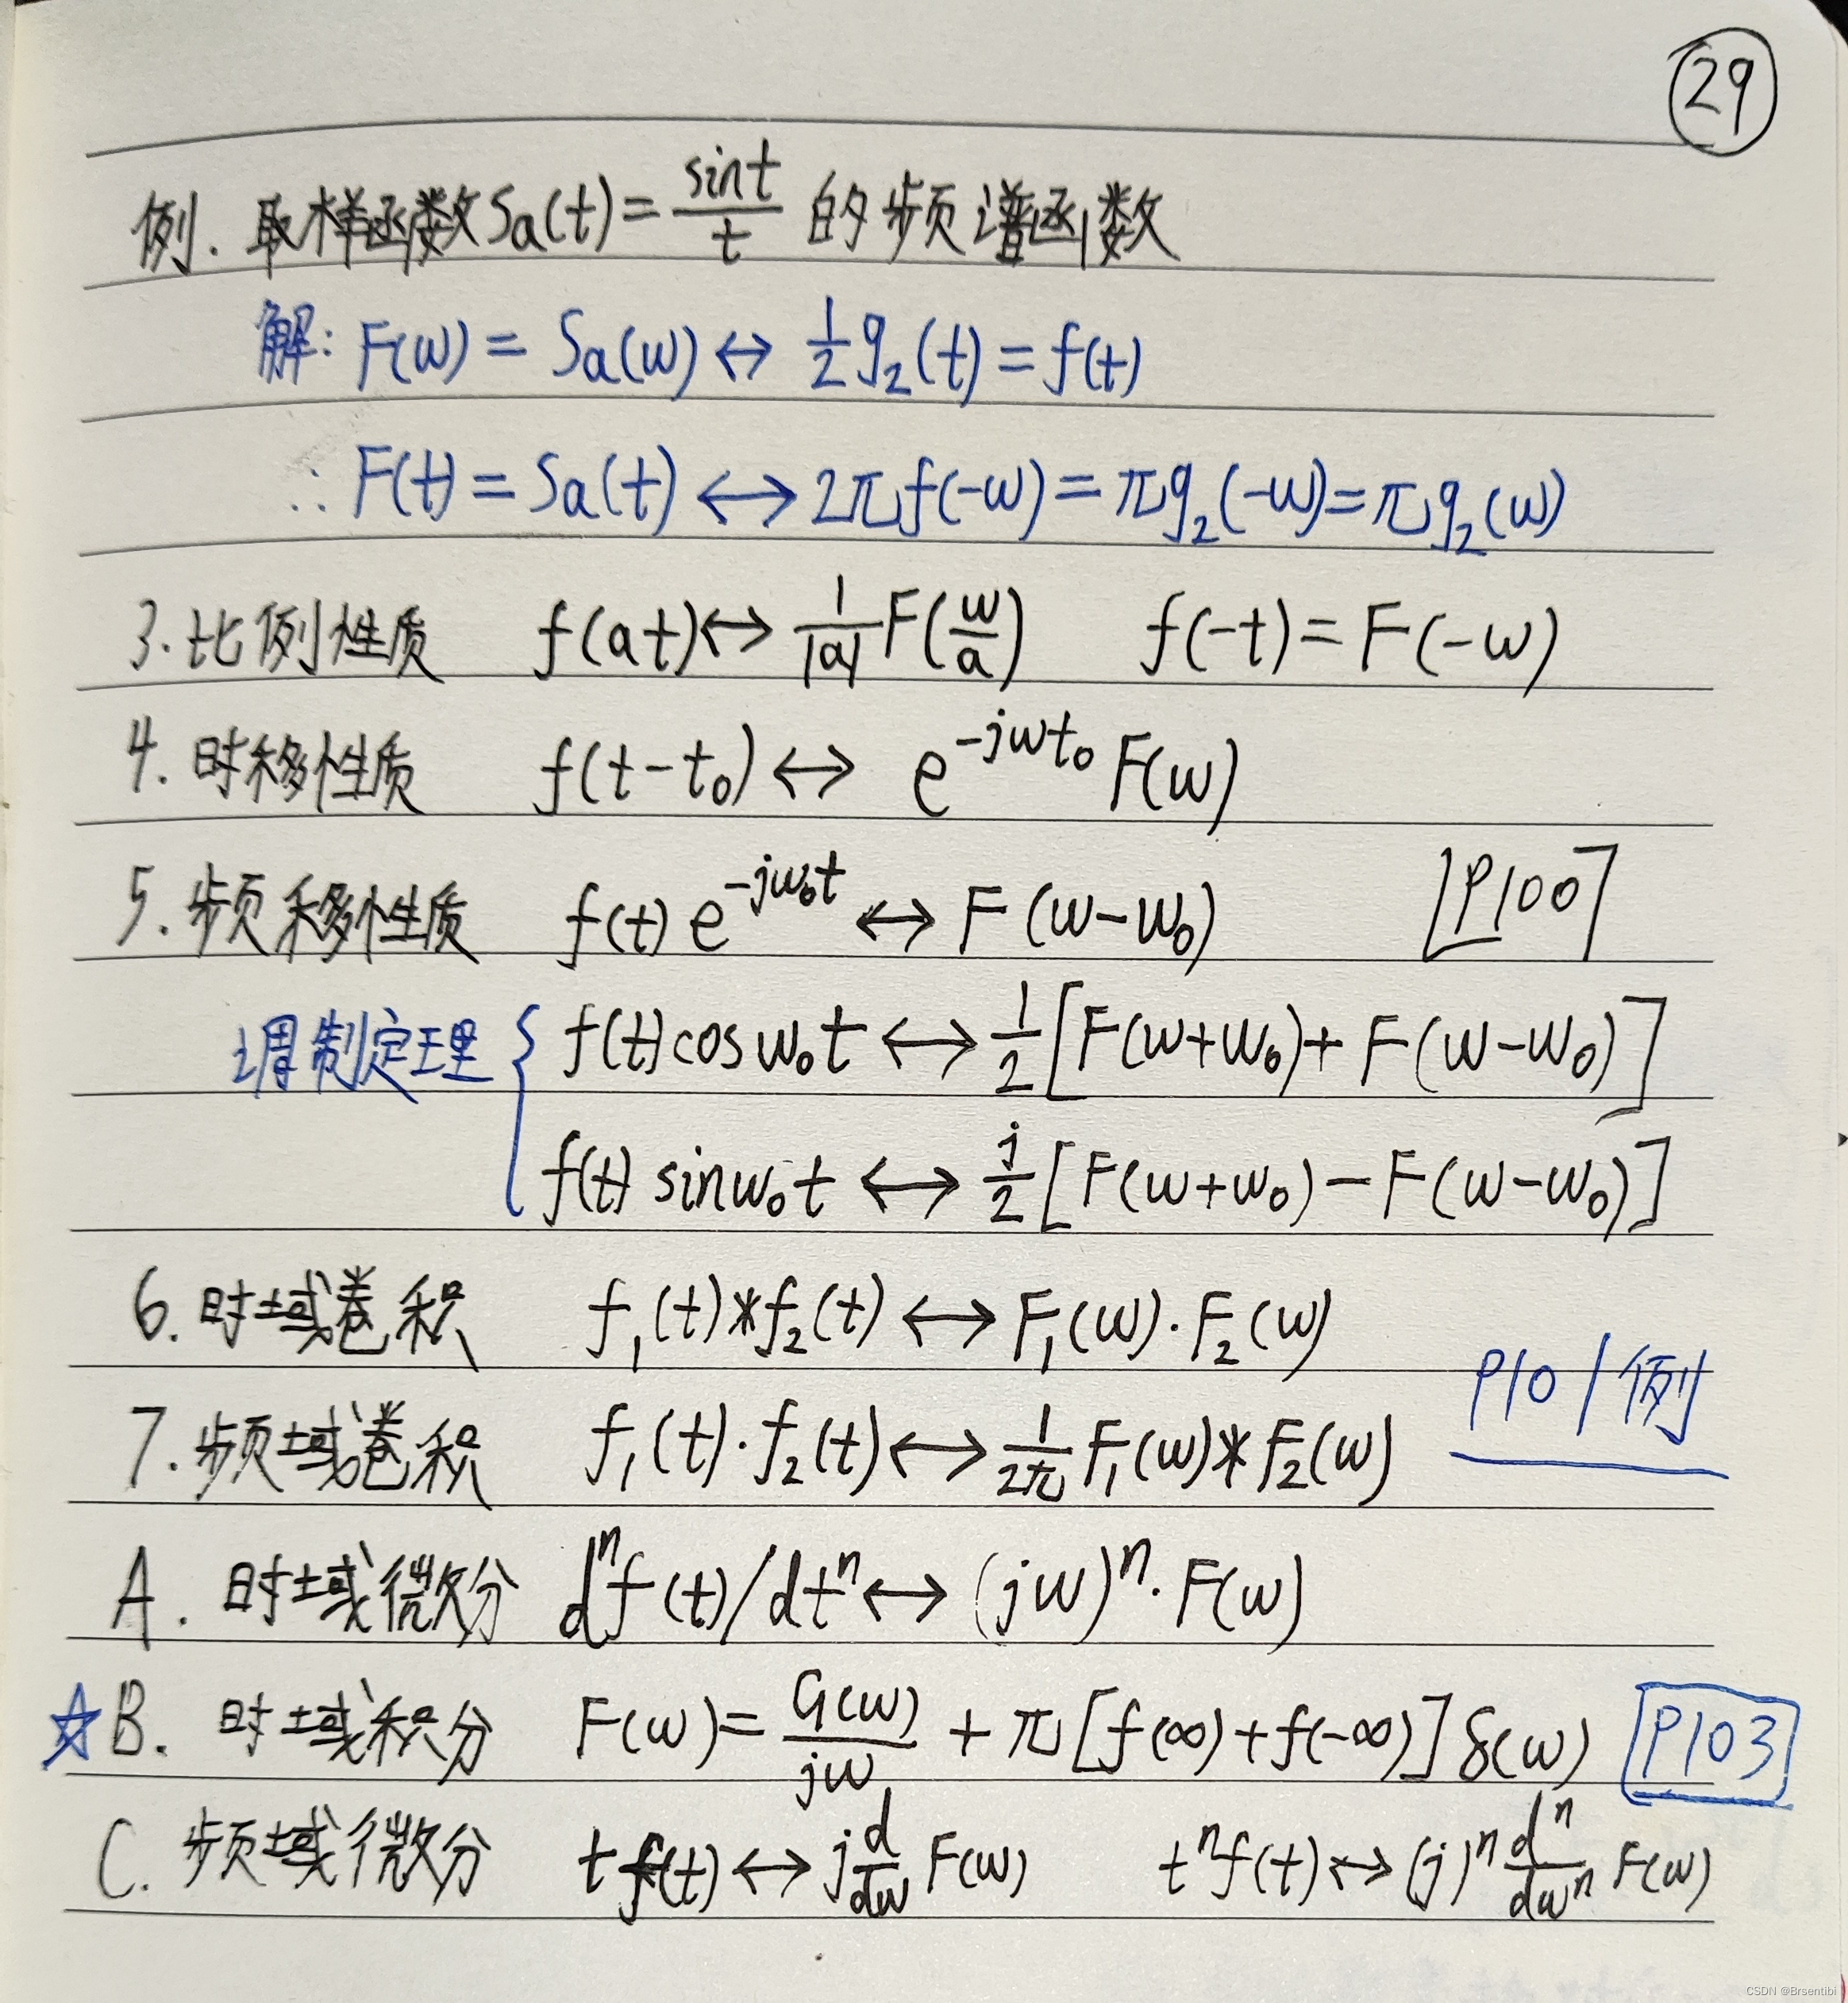 29
例. 取样函数Sa(t)=sint/t 的频谱函数
解: F(ω) = Sa(ω) ↔ 1/2 g₂(t) = f(t)
∴ F(t) = Sa(t) ↔ 2πf(-ω) = πg₂(-ω) = πg₂(ω)
3. 比例性质 f(at) ↔ 1/|a| F(ω/a) f(-t) = F(-ω)
4. 时移性质 f(t-t₀) ↔ e^(-jωt₀) F(ω)
5. 频移性质 f(t) e^(-jω₀t) ↔ F(ω-ω₀) [P100]
调制定理 { f(t)cosω₀t ↔ 1/2 [F(ω+ω₀) + F(ω-ω₀)]
f(t) sinω₀t ↔ j/2 [F(ω+ω₀) - F(ω-ω₀)]
6. 时域卷积 f₁(t)*f₂(t) ↔ F₁(ω)·F₂(ω)
P101例
7. 频域卷积 f₁(t)·f₂(t) ↔ 1/2π F₁(ω)*F₂(ω)
A. 时域微分 dⁿf(t)/dtⁿ ↔ (jω)ⁿ·F(ω)
☆B. 时域积分 F(ω) = G(ω)/jω + π[f(∞)+f(-∞)]δ(ω) [P103]
C. 频域微分 tf(t) ↔ j d/dω F(ω) tⁿf(t) ↔ (j)ⁿ dⁿ/dωⁿ F(ω)
CSDN @Brsentibi